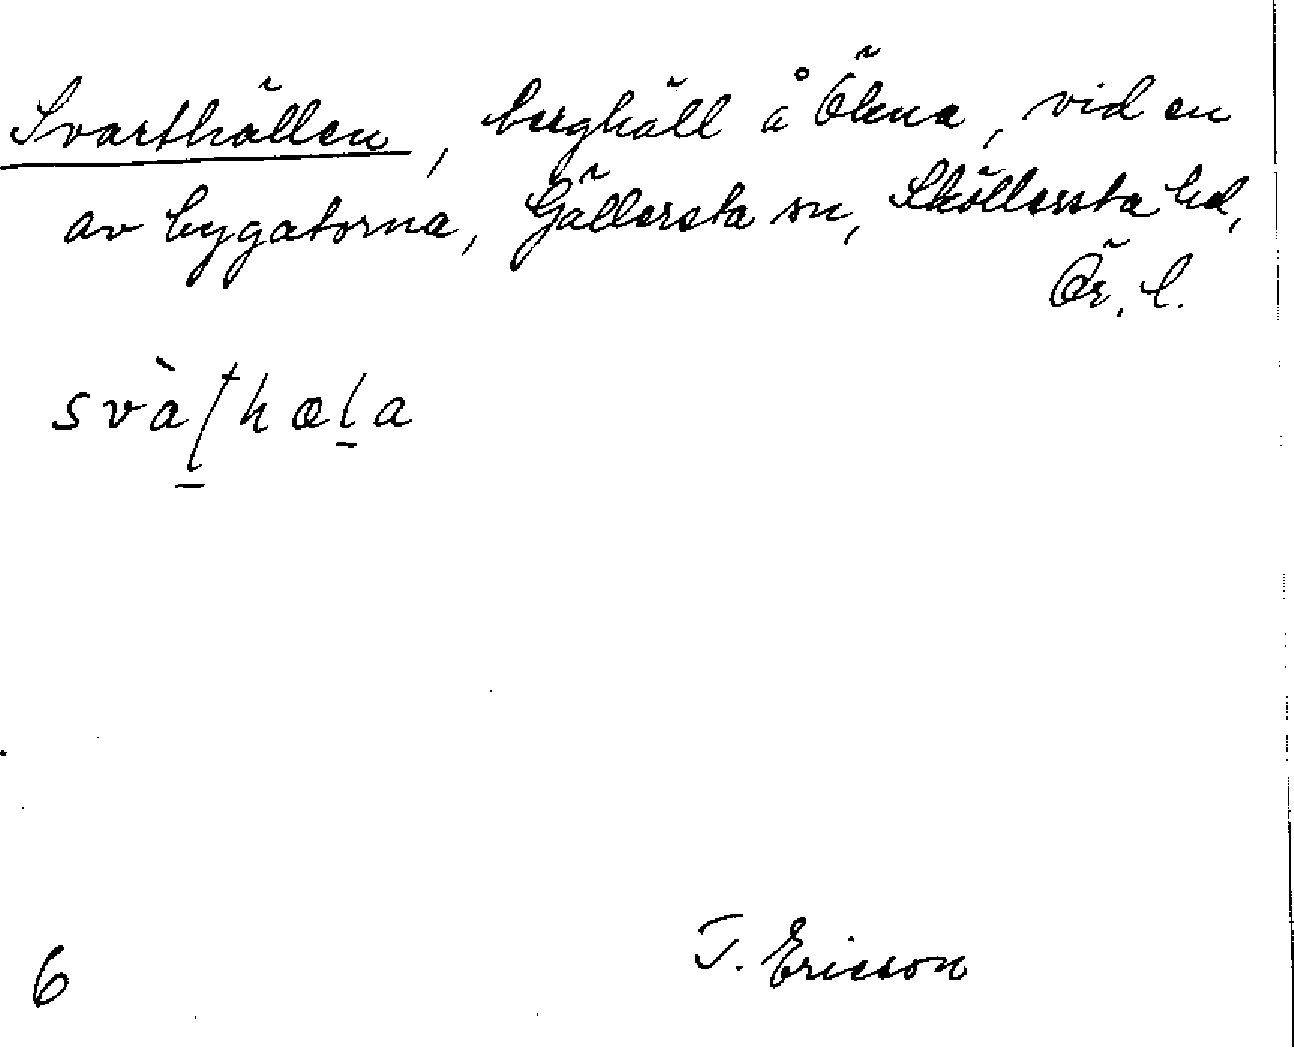 Svarthällen, berghäll å Ökna, vid en
av bygatorna, Gällersta sn, Sköllersta hd,
Ör. l.
svàʈhæla
6
T. Ericson